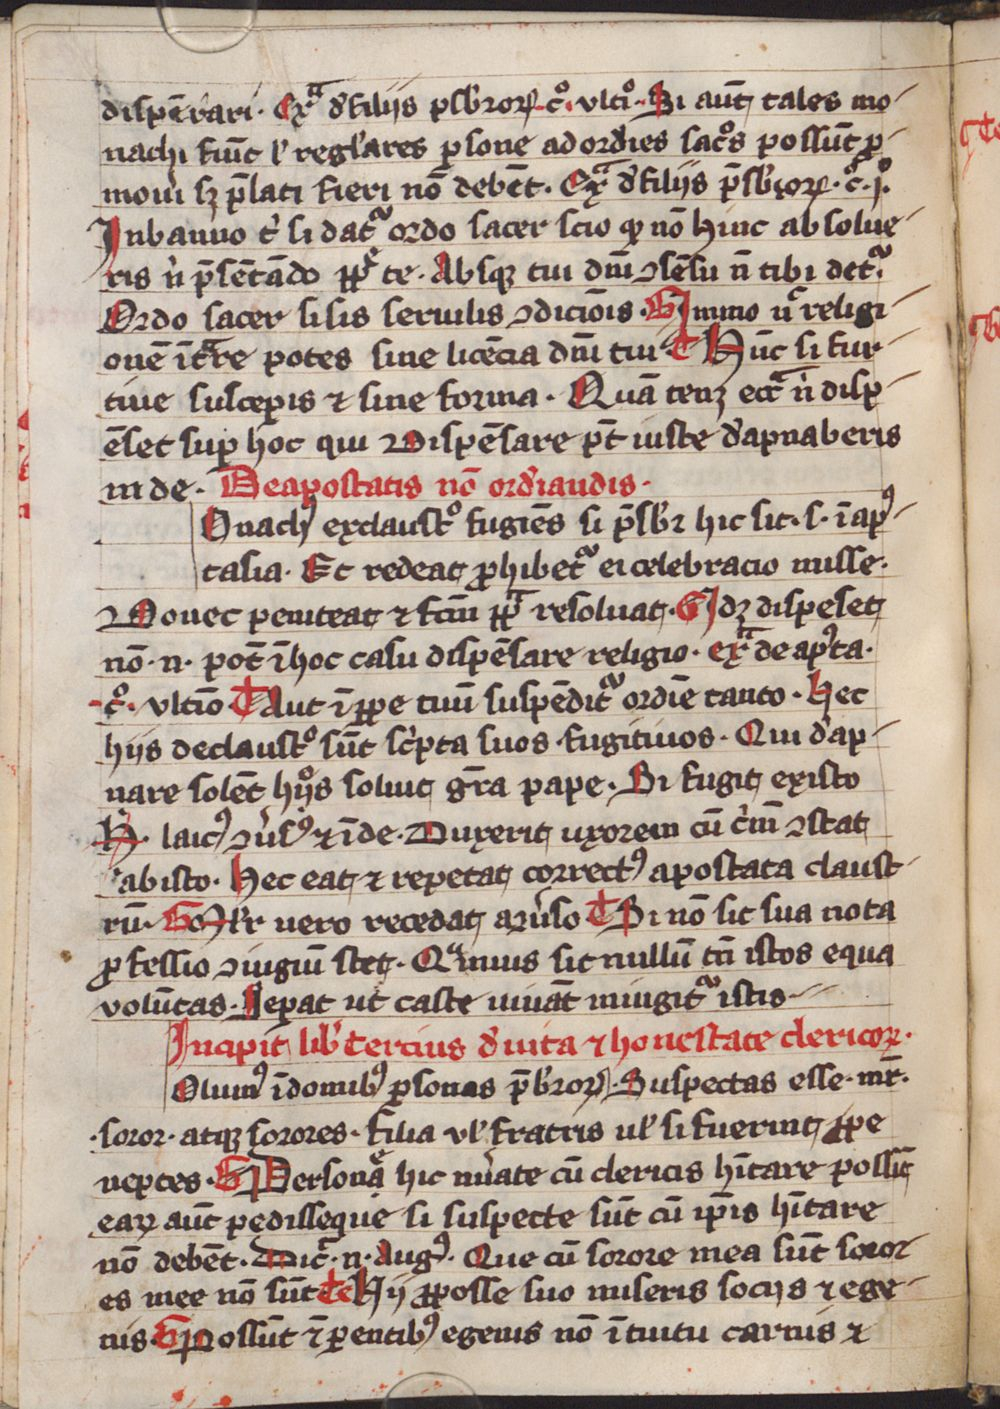 dispēsari. Exͣ dˀ filijs p̄sbr̄orꝝ c̊. vlti̊. Si aūt tales mo-
nachi fūit lˀ regl̄ares ꝑsone ad ordīes sac̊s possūt ꝓ-
moui sꝫ p̄lati fieri nō debēt. Exͣ dˀ filijs p̄sbr̄oꝝ. c̊. j̊.
In banno tˀ si datᷣ ordo sacer scio qꝫ nō hinc absolue-
ris nˀ p̄sētādo ꝑᵖ te. Absqꝫ tui dn̄i ↄsēsu n̄ tibi detᷣ
Ordo sacer si sis seruilis ↄdiciōis. G Immo nͨ religi-
onē ītͣre potes sine licēcia dn̄i tui ¶ Hūc si fur-
tiue suscepis ⁊ sine forma. Quā tenꝫ ecc̄ nˀ disp-
ēset suꝑ hoc qui Dispēsare pt̄ iuste dˀapnaberis
in de. De apostatis nō ordīandis.
Onachꝰ exclaust̊ fugiēs si p̄sbr̄ hic sit. s. ī apꝰ-
tasia. Et redeat ꝓhibetᷣ ei celebracio misse.
Donec peniteat ⁊ fc̄m ꝑᵖ resoluat. G Idꝫ dispēset
nō. n. pot̄ ī hoc casu dispēsare religio. exͣ de apˀta.
c̊. vltīo ¶ Aut ī ꝑpe tuū suspēditᷣ ordīe tanto. Hec
hijs de claust̊ sūt scˀpta suos fugitiuos. Qui dˀap-
nare solēt hͦs soluit gr̄a pape. Si fugit existo
H. laicꝰ ↄuˀsꝰ ⁊ īde. Duxerit uxorem cū cˀiū ↄstat
ab isto. Hec eat ⁊ repetat correctꝰ apostata claust-
rū. G Mlˀr uero recedat a ↄuˀso ¶ Si nō sit sua nota
ꝓfessio ↄiugiū stet. Qͣmuis sit nullū tn̄ istos equa
volūtas. Seꝑat ut caste uiuāt iniūgitᷣ istis
Incipit lib̄ tercius dˀ uita ⁊ honestate clericoꝝ.
Olumꝰ ī domibꝰ ꝑsonas p̄br̄oꝝ. Suspectas esse. mr̄.
soror. atqꝫ sorores. filia vlˀ fratris ulˀ si fuerint ꝑpe
neptes. G Personͤ hic nīate cū clericis hītare possūt
eaꝝ aūt pedisseque si suspecte sūt cū ip̄is hītare
nō debēt. Dicͣ. n. Augꝰ. Que cū sorore mea sūt soror-
es mee nō sūt ¶ Hij ꝓ posse suo miseris socijs ⁊ ege-
nis. G Possūt ⁊ ꝑentibꝰ egenis nō ītuitu carnis ⁊